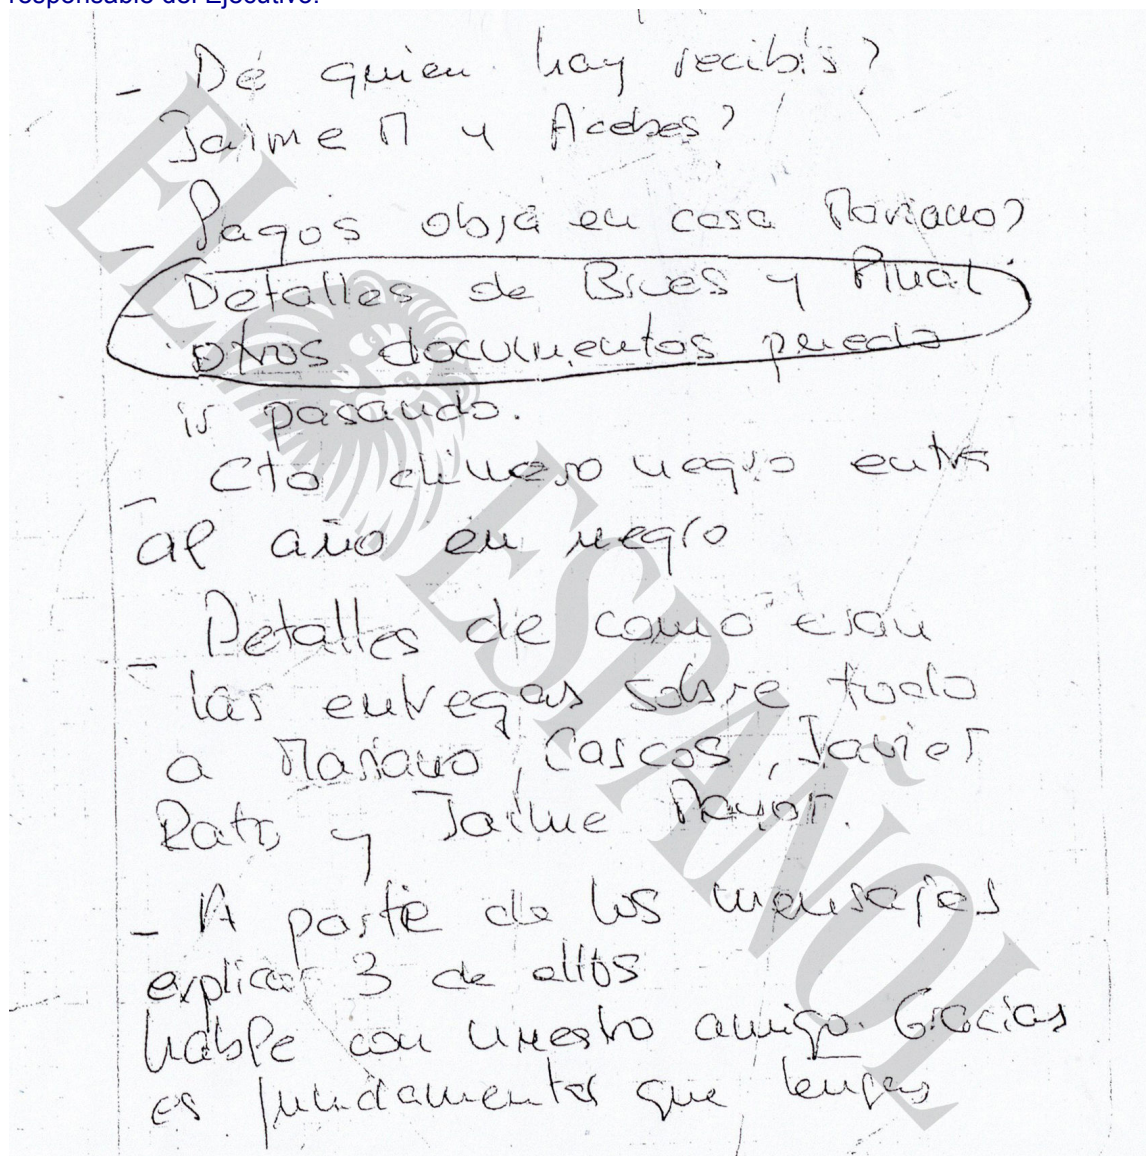 responsable del Ejecutivo.
- De quien hay recibís?
Jaime M y Acebes?
- Pagos obra en casa Mariano?
- Detalles de Bives y Pluat
otros documentos puedo
ir pasando.
- Cto dinero negro entra
al año en negro
- Detalles de como eran
las entregas sobre todo
a Mariano, Cascos, Javier
Rato y Jaime Mayor.
- A parte de los mensajes
explicar 3 de ellos
hable con nuestro amigo. Gracias
es fundamental que tengas
EL ESPAÑOL